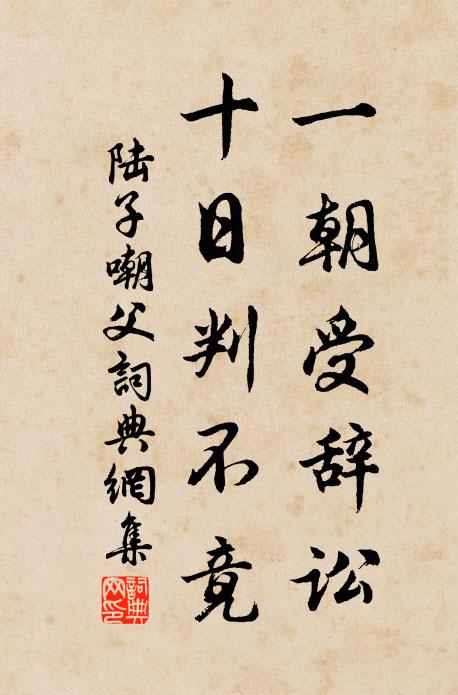 一朝受辞讼
十日判不竟
陆子嘲父詞典網集
詞典网印